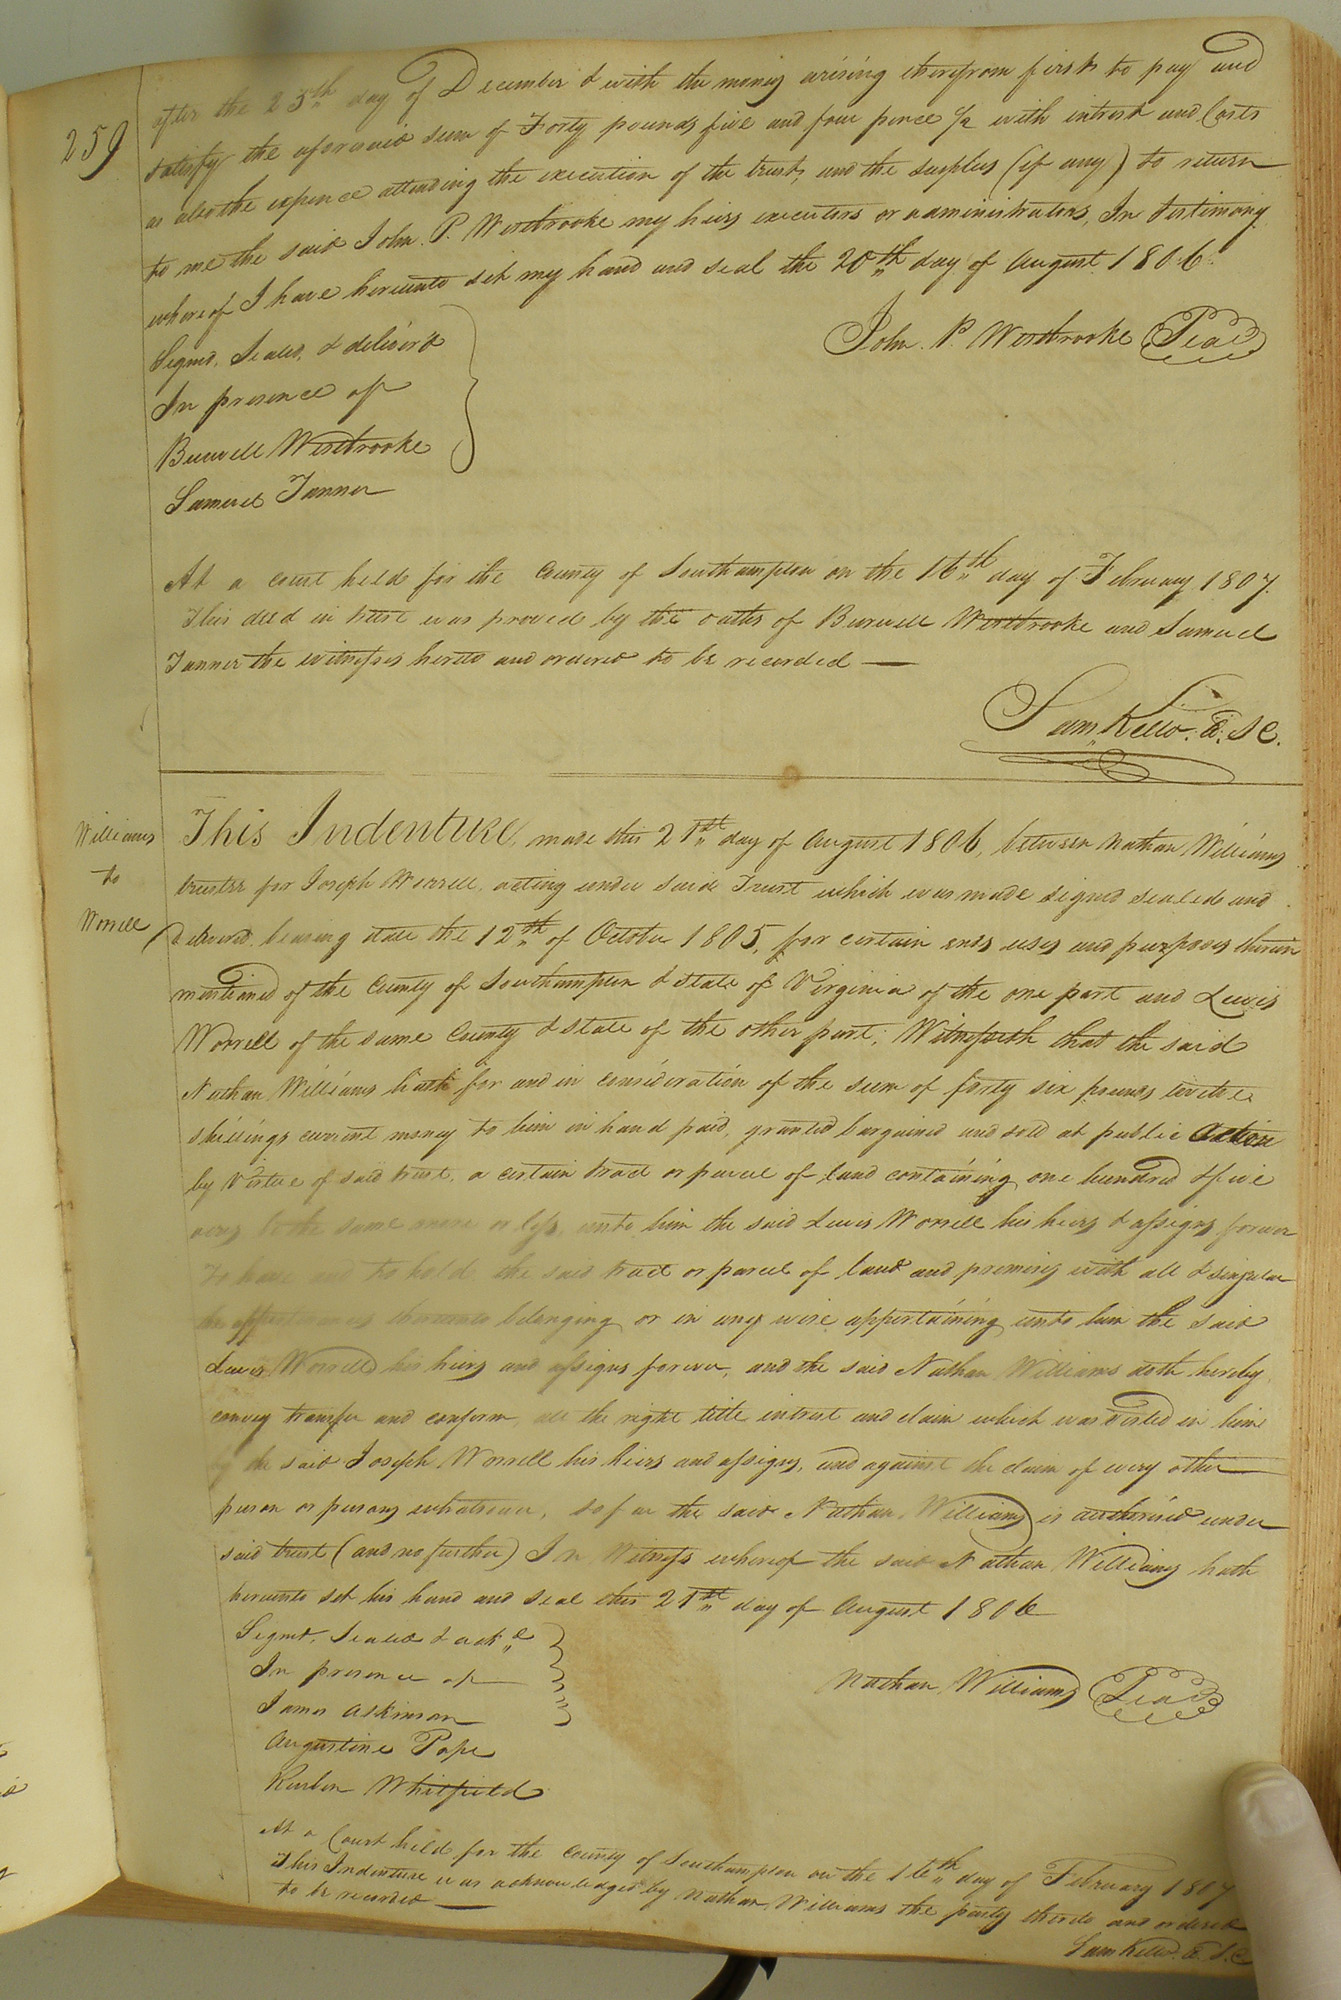 259
after the 25th day of December & with the money arising therefrom first to pay and
satisfy the aforesaid sum of Forty pounds five and four pence ½ with intrest and Costs
as also the expence attending the execution of the trust, and the surplus (if any) to return
to me the said John. P. Westbrooke my heirs executors or administrators, In testimony
whereof I have hereunto set my hand and seal the 20th day of August 1806.
Signd, Sealed, & deliver'd
John. P. Westbrooke Seal
In presence of
Burwell Westbrooke
Samuel Tanner
At a court held for the County of Southampton on the 16th day of February 1807.
This deed in trust was proved by the oaths of Burwell Westbrooke and Samuel
Tanner the witnesses hereto and ordered to be recorded —
Sam Kello. C. S C.
Williams
to
Worrell
This Indenture, made this 21st day of August 1806, between Nathan Williams
trustee for Joseph Worrell, acting under said Trust which was made signed sealed and
delivered, bearing date the 12th of October 1805, for certain ends uses and purposes therein
mentioned of the County of Southampton & State of Virginia of the one part and Lewis
Worrell of the same County & State of the other part; Witnesseth that the said
Nathan Williams hath for and in consideration of the sum of forty six pounds twelve
shillings current money to him in hand paid, granted bargained and sold at public Action
by Virtue of said trust, a certain tract or parcel of land containing one hundred & five
acres be the same more or less, unto him the said Lewis Worrell his heirs & assigns forever
To have and to hold the said tract or parcel of land and premises with all & singular
the appurtenances thereunto belonging or in any wise appertaining unto him the said
Lewis Worrell his heirs and assigns forever, and the said Nathan Williams doth hereby
convey transfer and conform all the right title intrest and claim which was Vested in him
by the said Joseph Worrell his heirs and assigns, and against the claim of every other
person or persons whatsoever, so far the said Nathan Williams is authorised under
said trust (and no further) In Witness whereof the said Nathan Williams hath
hereunto set his hand and seal this 21st day of August 1806
Signd, Sealed & ackd
In presence of
Nathan Williams Seal
James Askinson
Augustine Pope
Reuben Whitfield
At a Court held for the County of Southampton on the 16th day of February 1807
This Indenture was acknowledged by Nathan Williams the party thereto and ordered
to be recorded —
Sam Kello. C. S. C